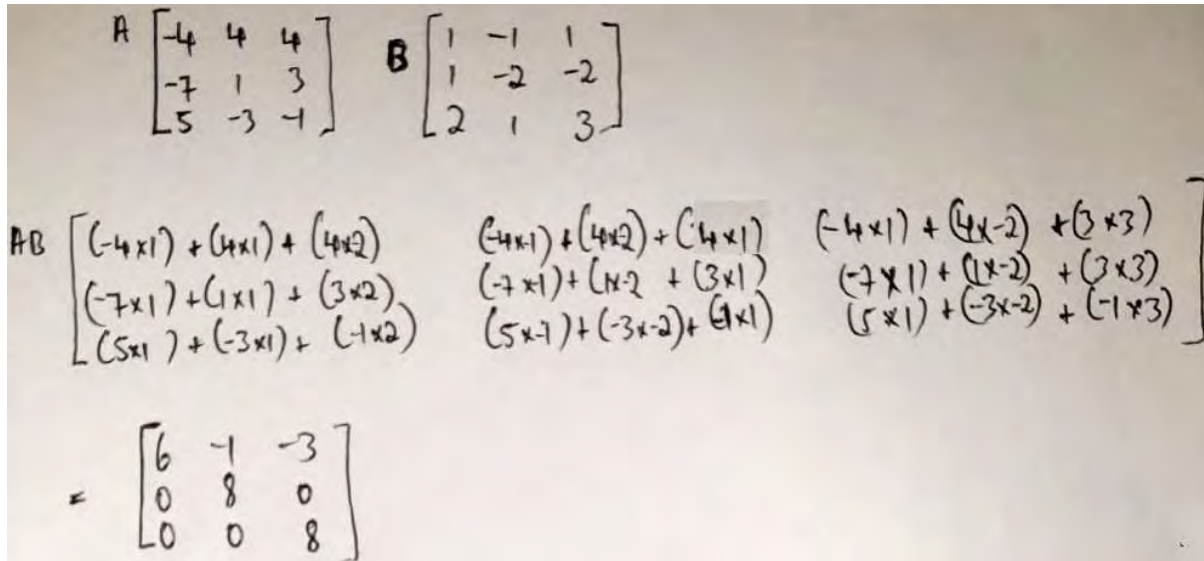 A [-4 4 4] B [1 -1 1]
[-7 1 3] [1 -2 -2]
[5 -3 -1] [2 1 3]
AB [(-4×1) + (4×1) + (4×2) (-4×-1) + (4×2) + (4×1) (-4×1) + (4×-2) + (3×3)
(-7×1) + (1×1) + (3×2) (-7×1) + (1×-2 + (3×1) (-7×1) + (1×-2) + (3×3)
(5×1) + (-3×1) + (-1×2) (5×-1) + (-3×-2) + (-1×1) (5×1) + (-3×-2) + (-1×3)]
= [6 -1 -3]
[0 8 0]
[0 0 8]